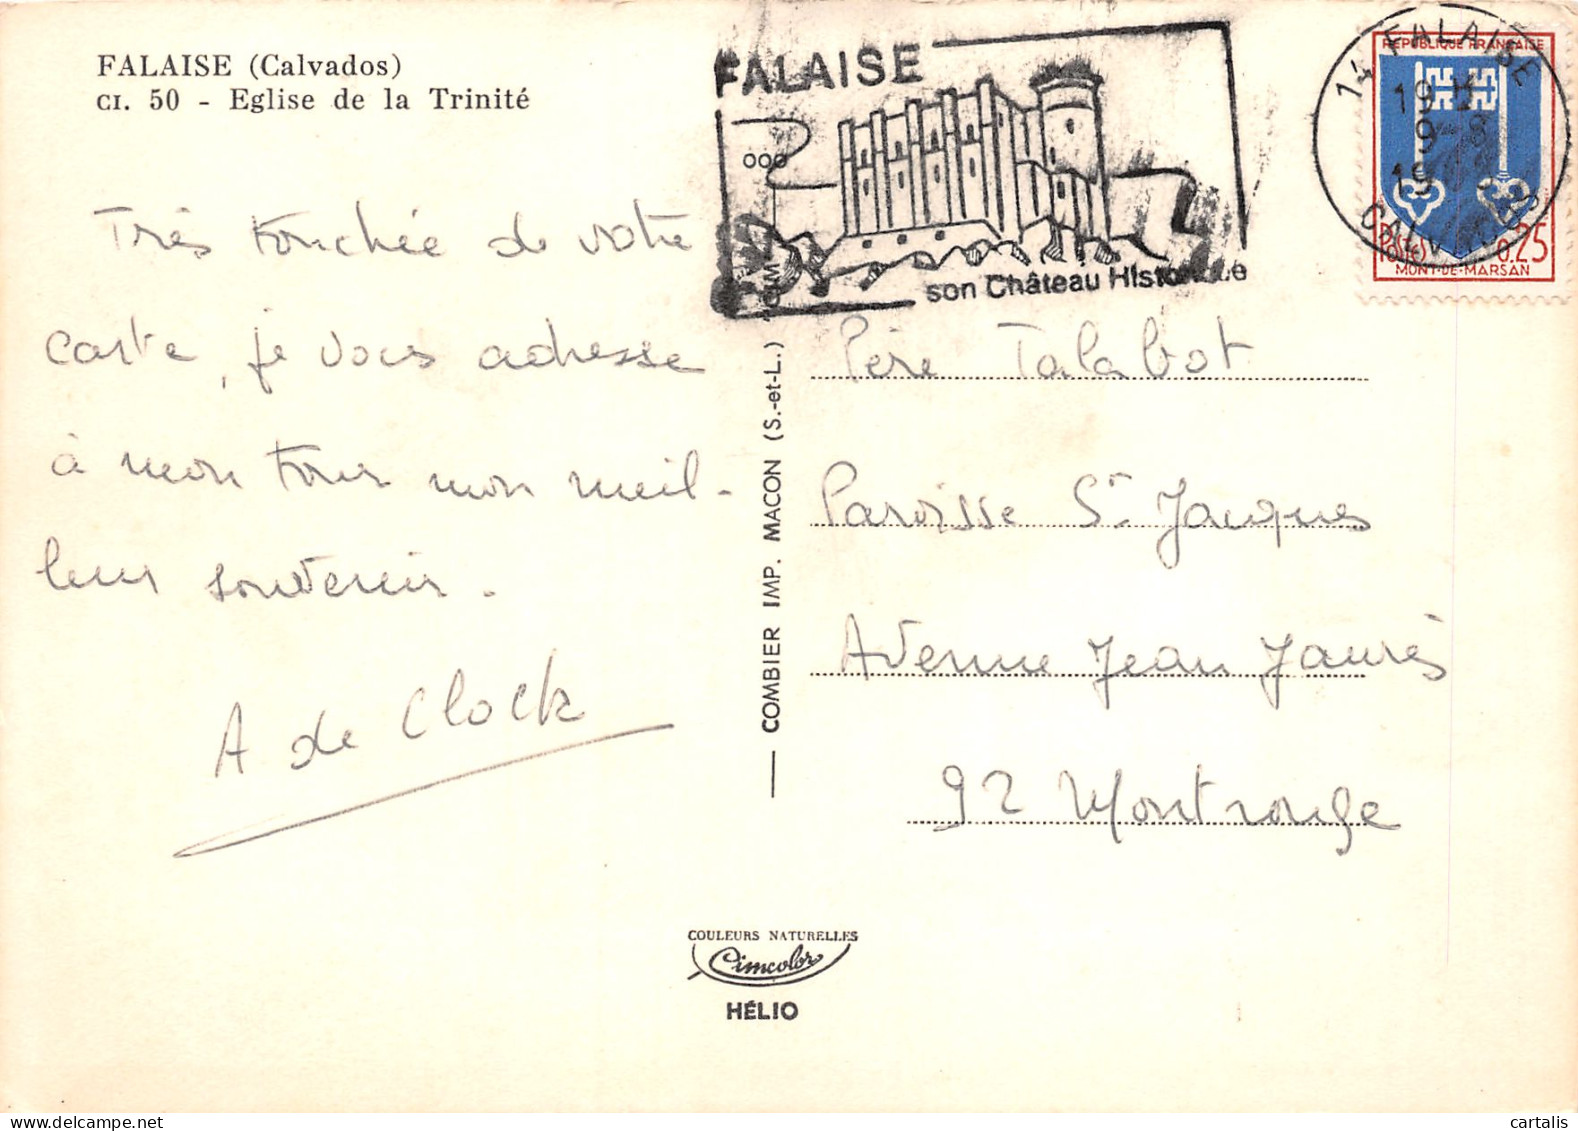 FALAISE (Calvados)
CI. 50 - Eglise de la Trinité
Très touchée de votre
carte, je vous adresse
à mon tour mon meil-
leur souvenir.
A de Clock
FALAISE
son Château Historique
14 FALAISE
CALVADOS
REPUBLIQUE FRANÇAISE
POSTES
0,25
MONT-DE-MARSAN
COMBIER IMP. MACON (S.-et-L.)
Père Talabot
Paroisse St Jacques
Avenue Jean Jaurès
92 Montrouge
COULEURS NATURELLES
Cimcolor
HÉLIO
cartalis